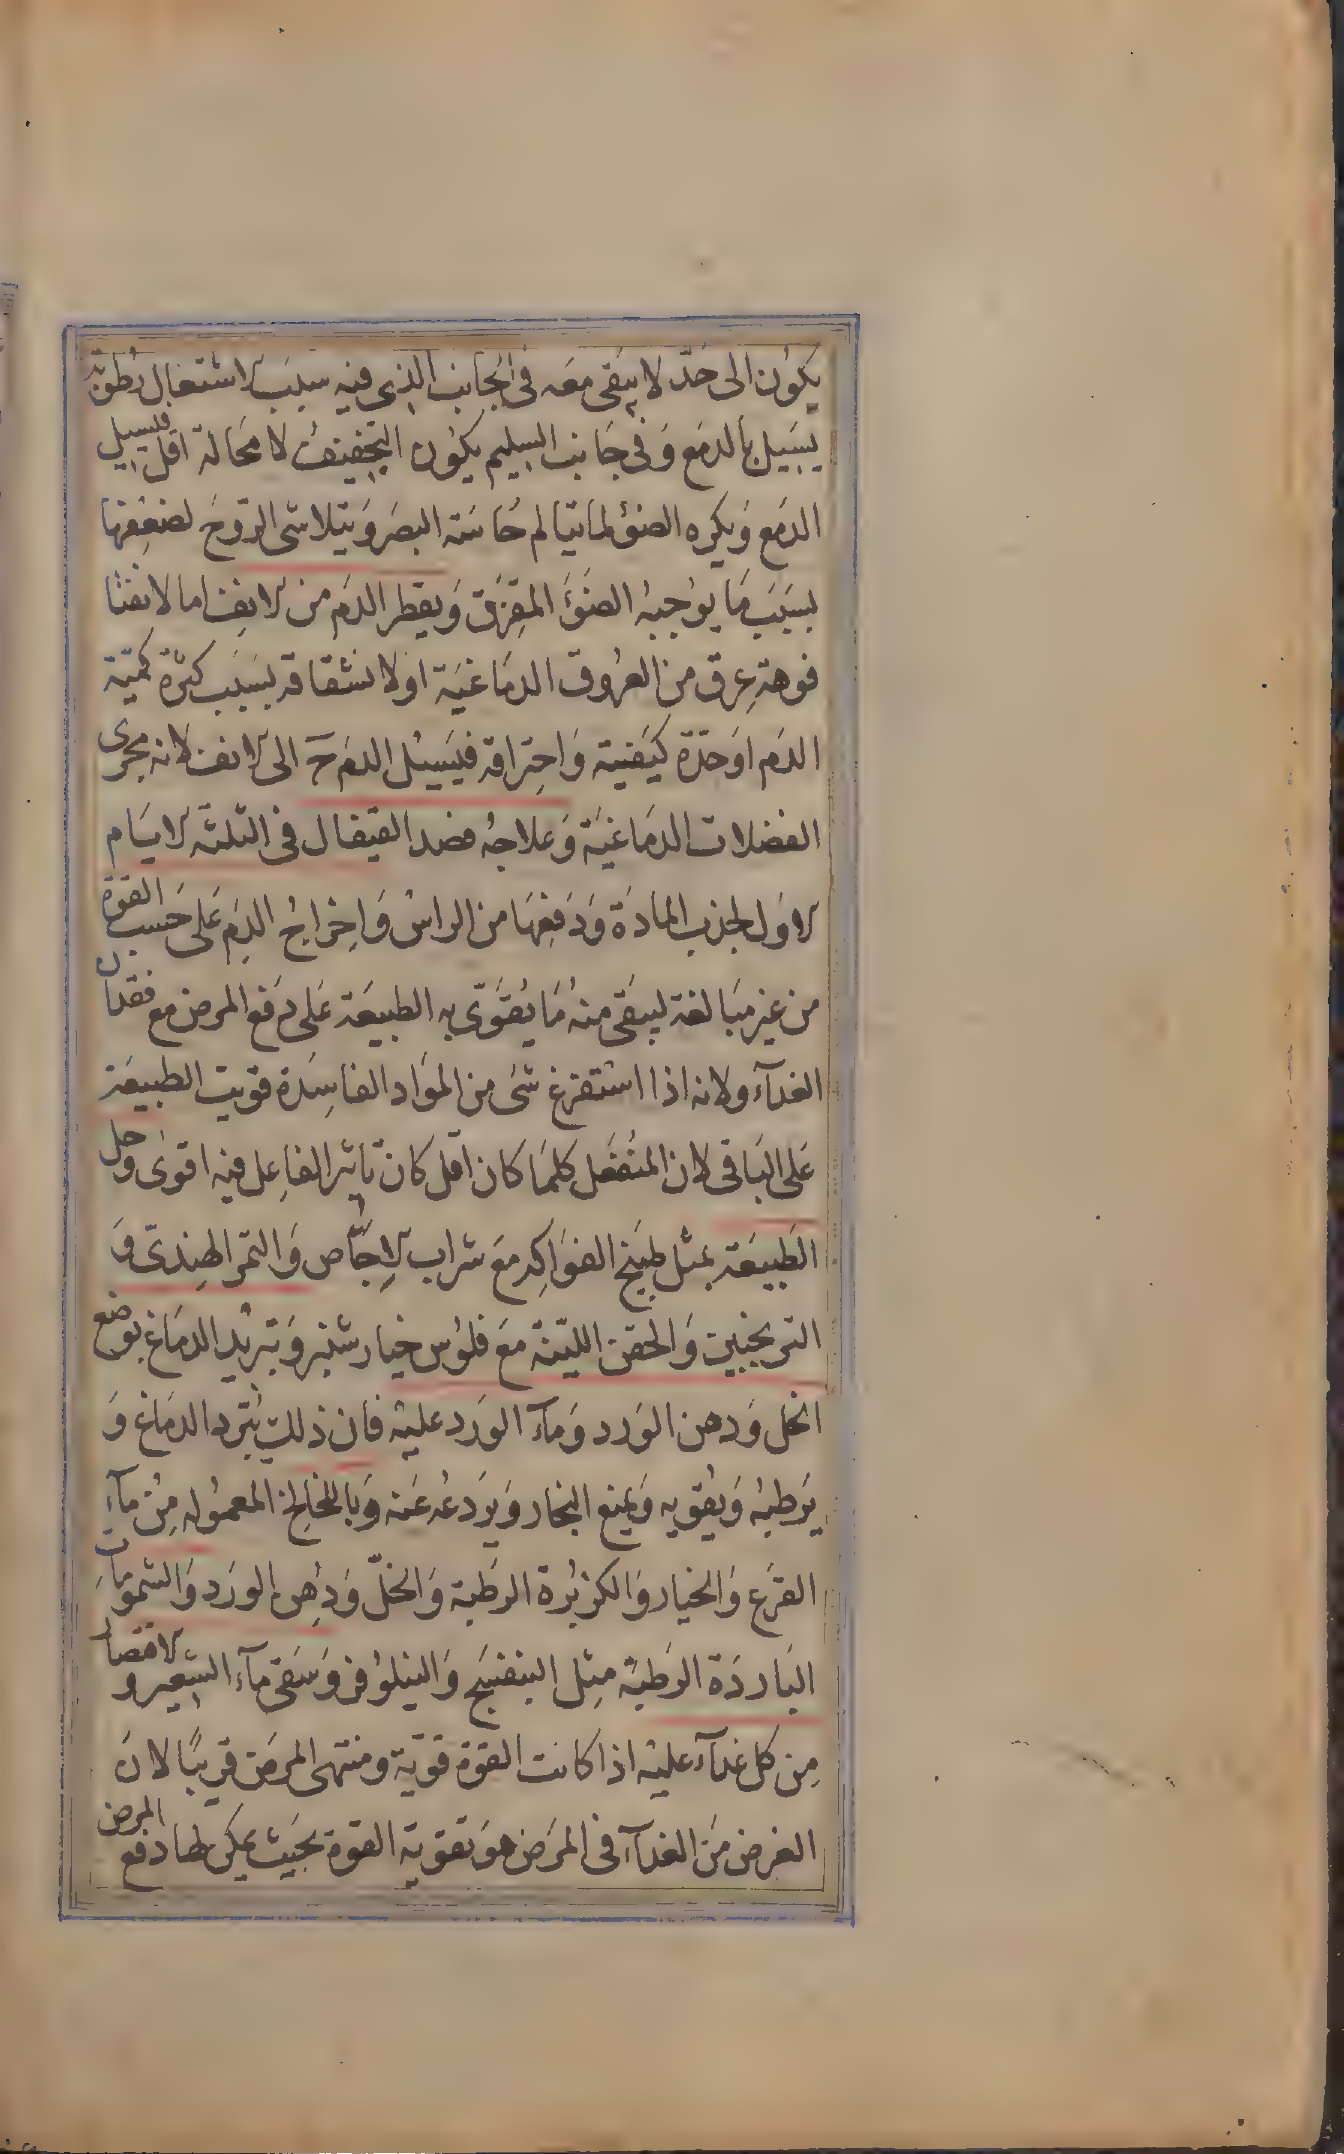 يكون الى حدّ لا يبقى معه فى الجانب الذى فيه سبب الاشتعال رطوبة
يسيل بالدمع وفى جانب السليم يكون التجفيف لا محالة اقل فيسيل
الدمع ويكره الضوء لما يتالم حاسة البصر ويتلاشى الروح لضعفها
بسبب ما يوجبه الضوء المفرق ويقطر الدم من الانف اما لانفتاح
فوهة عرق من العروق الدماغية او لانشقاقه بسبب كثرة كمية
الدم او حدّة كيفية واحتراقه فيسيل الدم ح الى الانف لانه مجرى
الفضلات الدماغية وعلاجه فصد القيفال فى الثلثة الايام
الاول لجذب المادة ودفعها من الراس واخراج الدم على حسب القوة
من غير مبالغة ليبقى منه ما يقوّى به الطبيعة على دفع المرض مع فقدان
الغدآء ولانه اذا استفرغ شئ من المواد الفاسدة قويت الطبيعة
على الباقى لان المنفعل كلما كان اقل كان تاثير الفاعل فيه اقوى وحل
الطبيعة بمثل طبيخ الفواكه مع شراب الاجّاص والتمر الهندىّ و
الترنجبين والحقن الليّنة مع فلوس خيار شنبر وتبريد الدماغ بوضع
الخل ودهن الورد ومآء الورد عليه فان ذلك يبّرد الدماغ و
يرطبه ويقويه ويمنع البخار ويردعه عنه وباللخالخ المعموله من مآء
القرع والخيار والكزبرة الرطبة والخلّ ودهن الورد والشمومات
الباردة الرطبة مثل البنفسج والنيلوفر وسقى مآء الشعير والاقتصار
من كل غدآء عليه اذا كانت القوة قوّية ومنتهى المرض قريبًا لان
الغرض من الغدآء فى المرض هو تقوية القوة بحيث يمكن لها دفع المرض